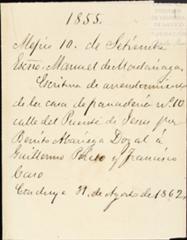 1855.
Mejico 10. de Setiembre
Escno. Manuel de Madariaga.
Escritura de arrendamiento
de la casa de panaderia nº 10
calle del Puente de Jesus por
Benito Abariega Dozal á
Guillermo y Francisco
Caso
Concluye 31. de Agosto de 1862.